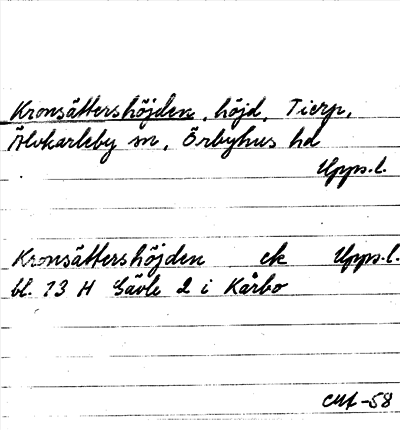 Kronsättershöjden, höjd, Tierp,
Älvkarleby sn, Örbyhus hd
Upps.l.
Kronsättershöjden ek Upps.l.
bl. 13 H Gävle 2 i Kårbo
-58